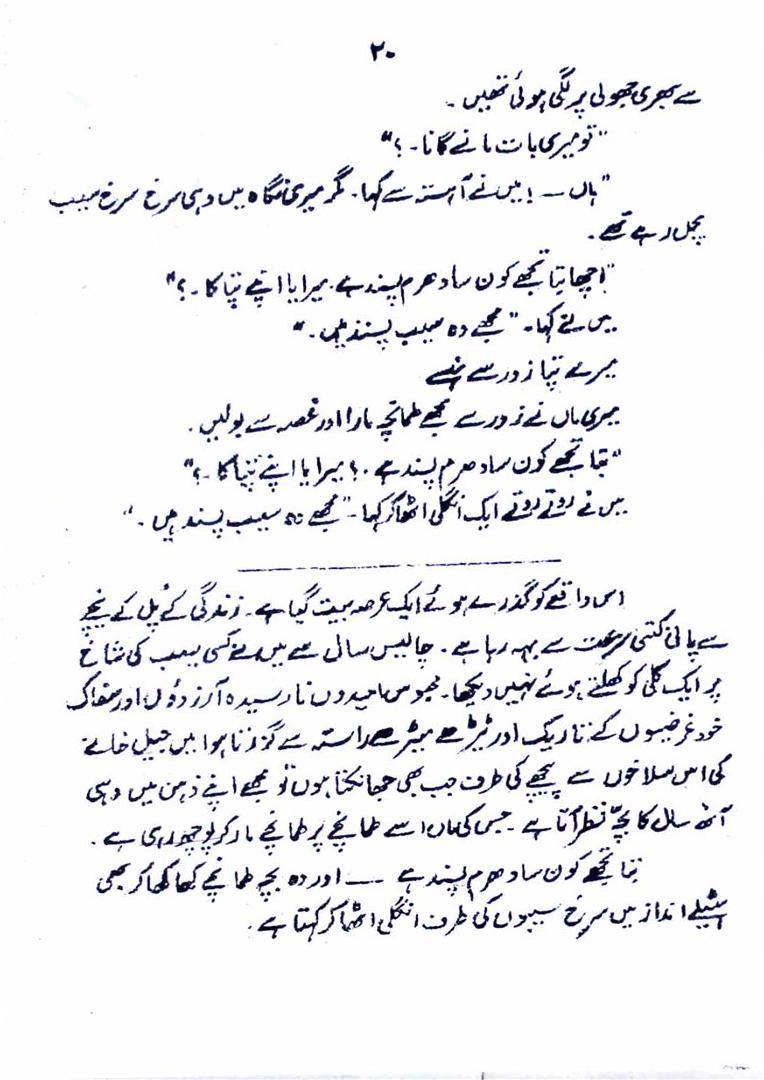 ۲۰
سے بھری جھولی پر لگی ہوئی تھیں ۔
"تو میری بات مانے گا نا ۔ ؟"
"ہاں — ! میں نے آہستہ سے کہا۔ مگر میری نگاہ میں وہی سرخ سرخ سیب
مچل رہے تھے ۔
"اچھا بتا تجھے کون سا دھرم پسند ہے۔ میرا یا اپنے پتا کا ۔ ؟"
میں نے کہا ۔ "مجھے وہ سیب پسند ہیں ۔"
میرے پتا زور سے ہنسے
میری ماں نے زور سے مجھے طمانچہ مارا اور غصہ سے بولیں ۔
"بتا تجھے کون سا دھرم پسند ہے ۔ ؟ میرا یا اپنے پتا کا ۔ ؟"
میں نے روتے روتے ایک انگلی اٹھا کر کہا ۔ "مجھے وہ سیب پسند ہیں ۔"
اس واقعے کو گذرے ہوئے ایک عرصہ بیت گیا ہے ۔ زندگی کے پُل کے نیچے
سے پانی کتنی سرعت سے بہہ رہا ہے ۔ چالیس سال سے میں نے کسی سیب کی شاخ
پر ایک کلی کو کھلتے ہوئے نہیں دیکھا ۔ محبوس امیدوں نارسیدہ آرزوؤں اور سفاک
خود غرضیوں کے تاریک اور ٹیڑھے میڑھے راستہ سے گزرتا ہوا میں جیل خانے
کی اس سلاخوں سے پیچھے کی طرف جب بھی جھانکتا ہوں تو مجھے اپنے ذہن میں وہی
آٹھ سال کا بچہّ نظر آتا ہے ۔ جس کی ماں اسے طمانچے پر طمانچے مار کر پوچھ رہی ہے ۔
بتا تجھے کون سا دھرم پسند ہے — اور وہ بچہ طمانچے کھا کھا کر بھی
ہٹیلے انداز میں سرخ سیبوں کی طرف انگلی اٹھا کر کہتا ہے ۔